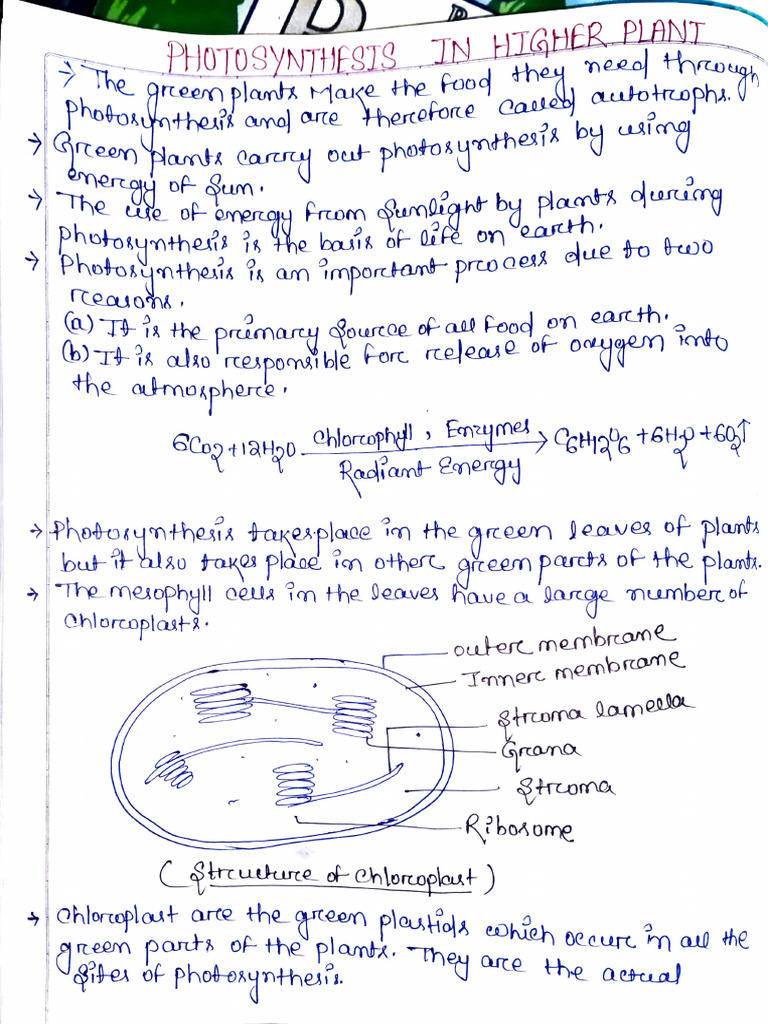 PHOTOSYNTHESIS IN HIGHER PLANT
→ The green plants make the food they need through
photosynthesis and are therefore called autotrophs.
→ Green plants carry out photosynthesis by using
energy of Sun.
→ The use of energy from sunlight by plants during
photosynthesis is the basis of life on earth.
→ Photosynthesis is an important process due to two
reasons.
(a) It is the primary source of all food on earth.
(b) It is also responsible for release of oxygen into
the atmosphere.
6CO2 + 12H2O Chlorophyll, Enzymes → C6H12O6 + 6H2O + 6O2↑
Radiant Energy
→ Photosynthesis takes place in the green leaves of plants
but it also takes place in other green parts of the plants.
→ The mesophyll cells in the leaves have a large number of
chloroplasts.
outer membrane
Inner membrane
Stroma lamella
Grana
Stroma
Ribosome
(Structure of chloroplast)
→ Chloroplast are the green plastids which occur in all the
green parts of the plants. They are the actual
sites of photosynthesis.